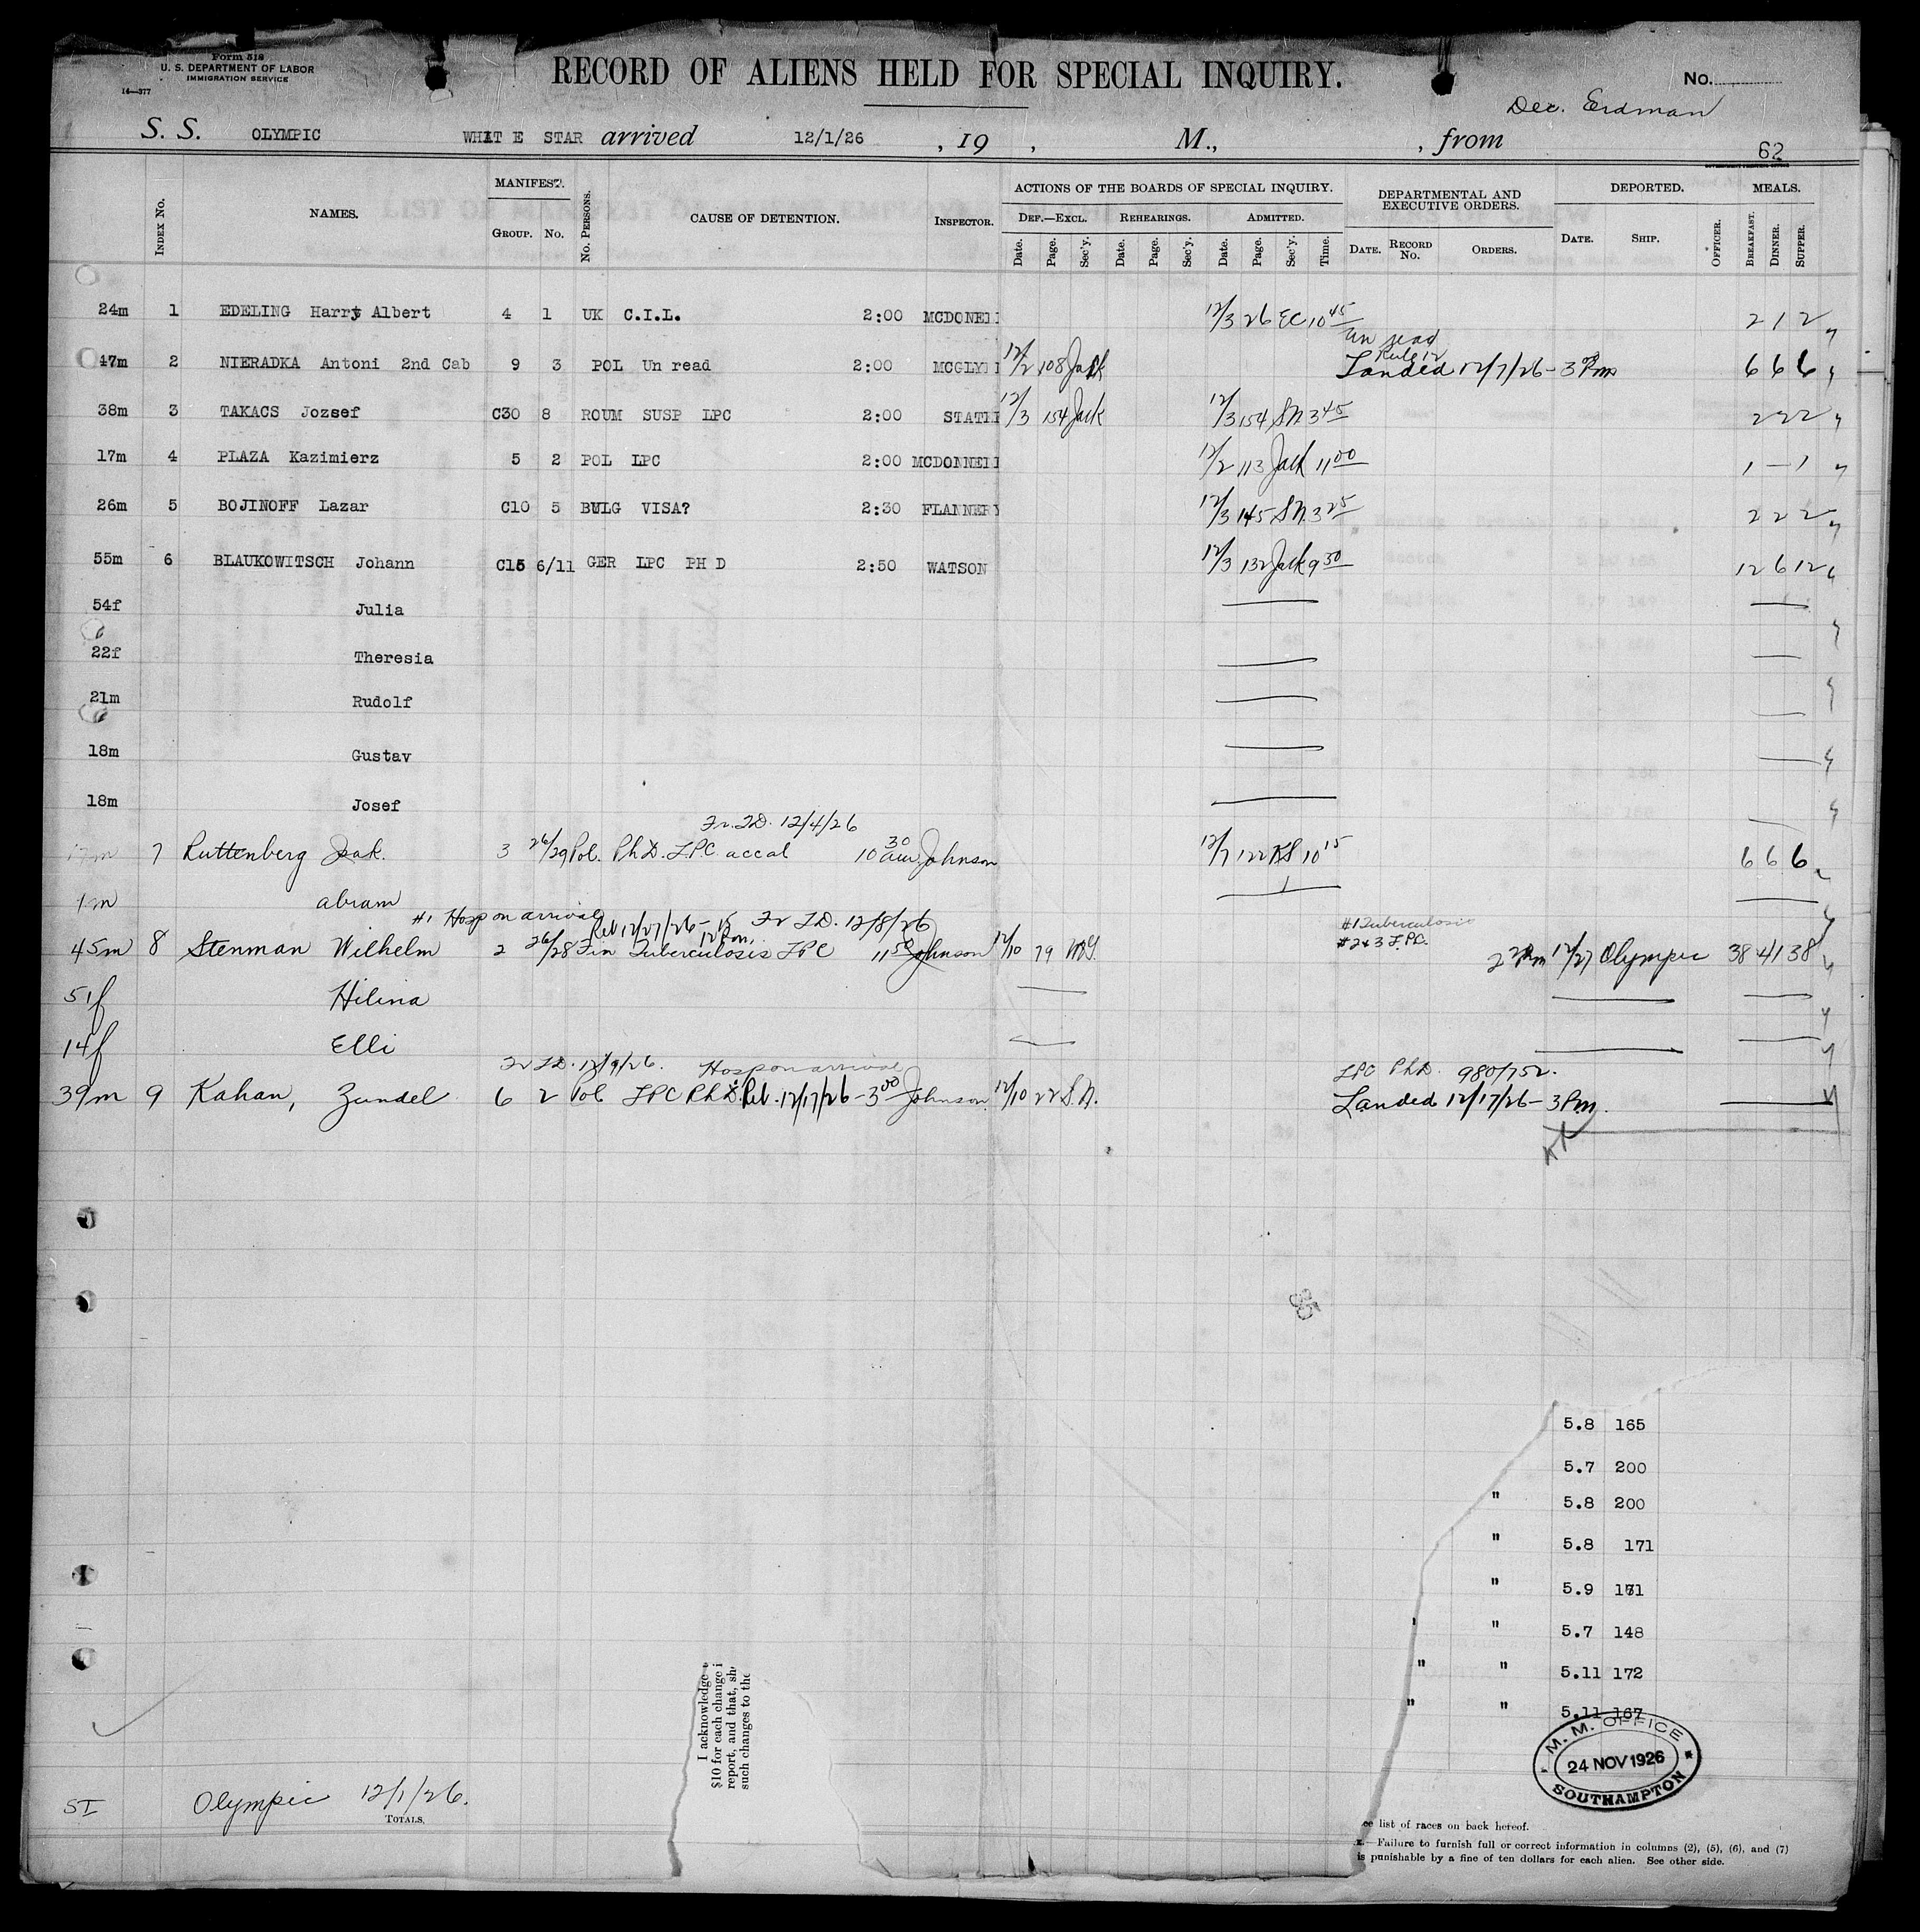 Form 518
U. S. DEPARTMENT OF LABOR
IMMIGRATION SERVICE
14—377
RECORD OF ALIENS HELD FOR SPECIAL INQUIRY.
No.
Dec. Erdman
S. S. OLYMPIC WHIT E STAR arrived 12/1/26 , 19 , M., , from
62
INDEX No. NAMES. MANIFEST. GROUP. No. No. PERSONS. CAUSE OF DETENTION. INSPECTOR. ACTIONS OF THE BOARDS OF SPECIAL INQUIRY. DEPARTMENTAL AND EXECUTIVE ORDERS. DEPORTED. MEALS.
DEF.—EXCL. REHEARINGS. ADMITTED.
Date. Page. Sec'y. Date. Page. Sec'y. Date. Page. Sec'y. Time. DATE. RECORD No. ORDERS. DATE. SHIP. OFFICER. BREAKFAST. DINNER. SUPPER.
24m 1 EDELING Harry Albert 4 1 UK C.I.L. 2:00 MCDONEL 12/3 26 EC 10 45 2 1 2
Un read
Rule 12
47m 2 NIERADKA Antoni 2nd Cab 9 3 POL Un read 2:00 MCGLY 12/2 108 Jack Landed 12/7/26 - 3 Pm 6 6 6
38m 3 TAKACS Jozsef C30 8 ROUM SUSP LPC 2:00 STATL 12/3 154 Jack 12/3 154 S.N. 3 45 2 2 2
17m 4 PLAZA Kazimierz 5 2 POL LPC 2:00 MCDONNELL 12/2 113 Jack 11 00 1 — 1
26m 5 BOJINOFF Lazar C10 5 BULG VISA? 2:30 FLANNERY 12/3 145 S.N. 3 25 2 2 2
55m 6 BLAUKOWITSCH Johann C15 6/11 GER LPC PH D 2:50 WATSON 12/3 132 Jack 9 30 12 6 12
54f Julia
22f Theresia
21m Rudolf
18m Gustav
18m Josef
Fr. T.D. 12/4/26
17m 7 Ruttenberg Isak. 3 26/29 Pol. Ph.D. LPC accal 10 30 am Johnson 12/7 122 KS 10 15 6 6 6
1m abram
#1 Hosp on arrival Reb 12/27/26 - Fr T.D. 12/8/26 #1 Tuberculosis
#2&3 LPC.
45m 8 Stenman Wilhelm 2 26/28 Fin Tuberculosis LPC 11 50 Johnson 12/10 79 12/27 Olympic 38 41 38
51f Hilina
14f Elli
Fr T.D. 12/9/26. Hosp on arrival LPC Ph.D. 980/752.
39m 9 Kahan, Zundel 6 2 Pol LPC Ph.D. Reb. 12/17/26 - 3 00 Johnson 12/10 22 S.N. Landed 12/17/26 - 3 Pm.
5.8 165
5.7 200
" 5.8 200
" 5.8 171
" 5.9 171
" " 5.7 148
" " 5.11 172
" " 5.11 167
I acknowledge
$10 for each change i
report, and that, sh
such changes to the
M. M. OFFICE
24 NOV 1926
SOUTHAMPTON
SI Olympic 12/1/26.
TOTALS.
ee list of races on back hereof.
.—Failure to furnish full or correct information in columns (2), (5), (6), and (7)
is punishable by a fine of ten dollars for each alien. See other side.